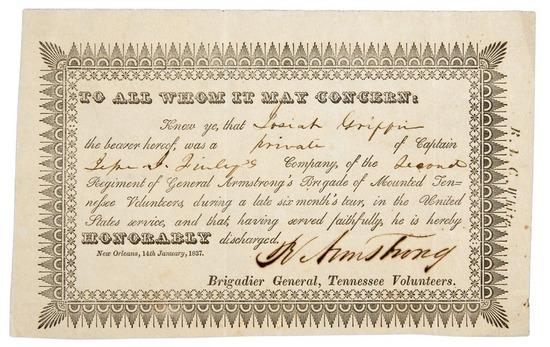 TO ALL WHOM IT MAY CONCERN:
Know ye, that Josiah Griffin
the bearer hereof, was a private of Captain
Company, of the Second
Regiment of General Armstrong's Brigade of Mounted Ten-
nessee Volunteers, during a late six month's tour, in the United
States service, and that, having served faithfully, he is hereby
HONORABLY discharged.
R Armstrong
New Orleans, 14th January, 1837.
Brigadier General, Tennessee Volunteers.